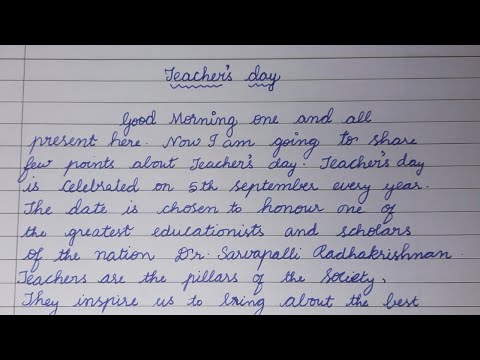 Teacher's day
Good Morning one and all
present here. Now I am going to share
few points about Teacher's day. Teacher's day
is celebrated on 5th september every year.
The date is chosen to honour one of
the greatest educationists and scholars
of the nation Dr. Sarvapalli Radhakrishnan.
Teachers are the pillars of the society.
They inspire us to bring about the best